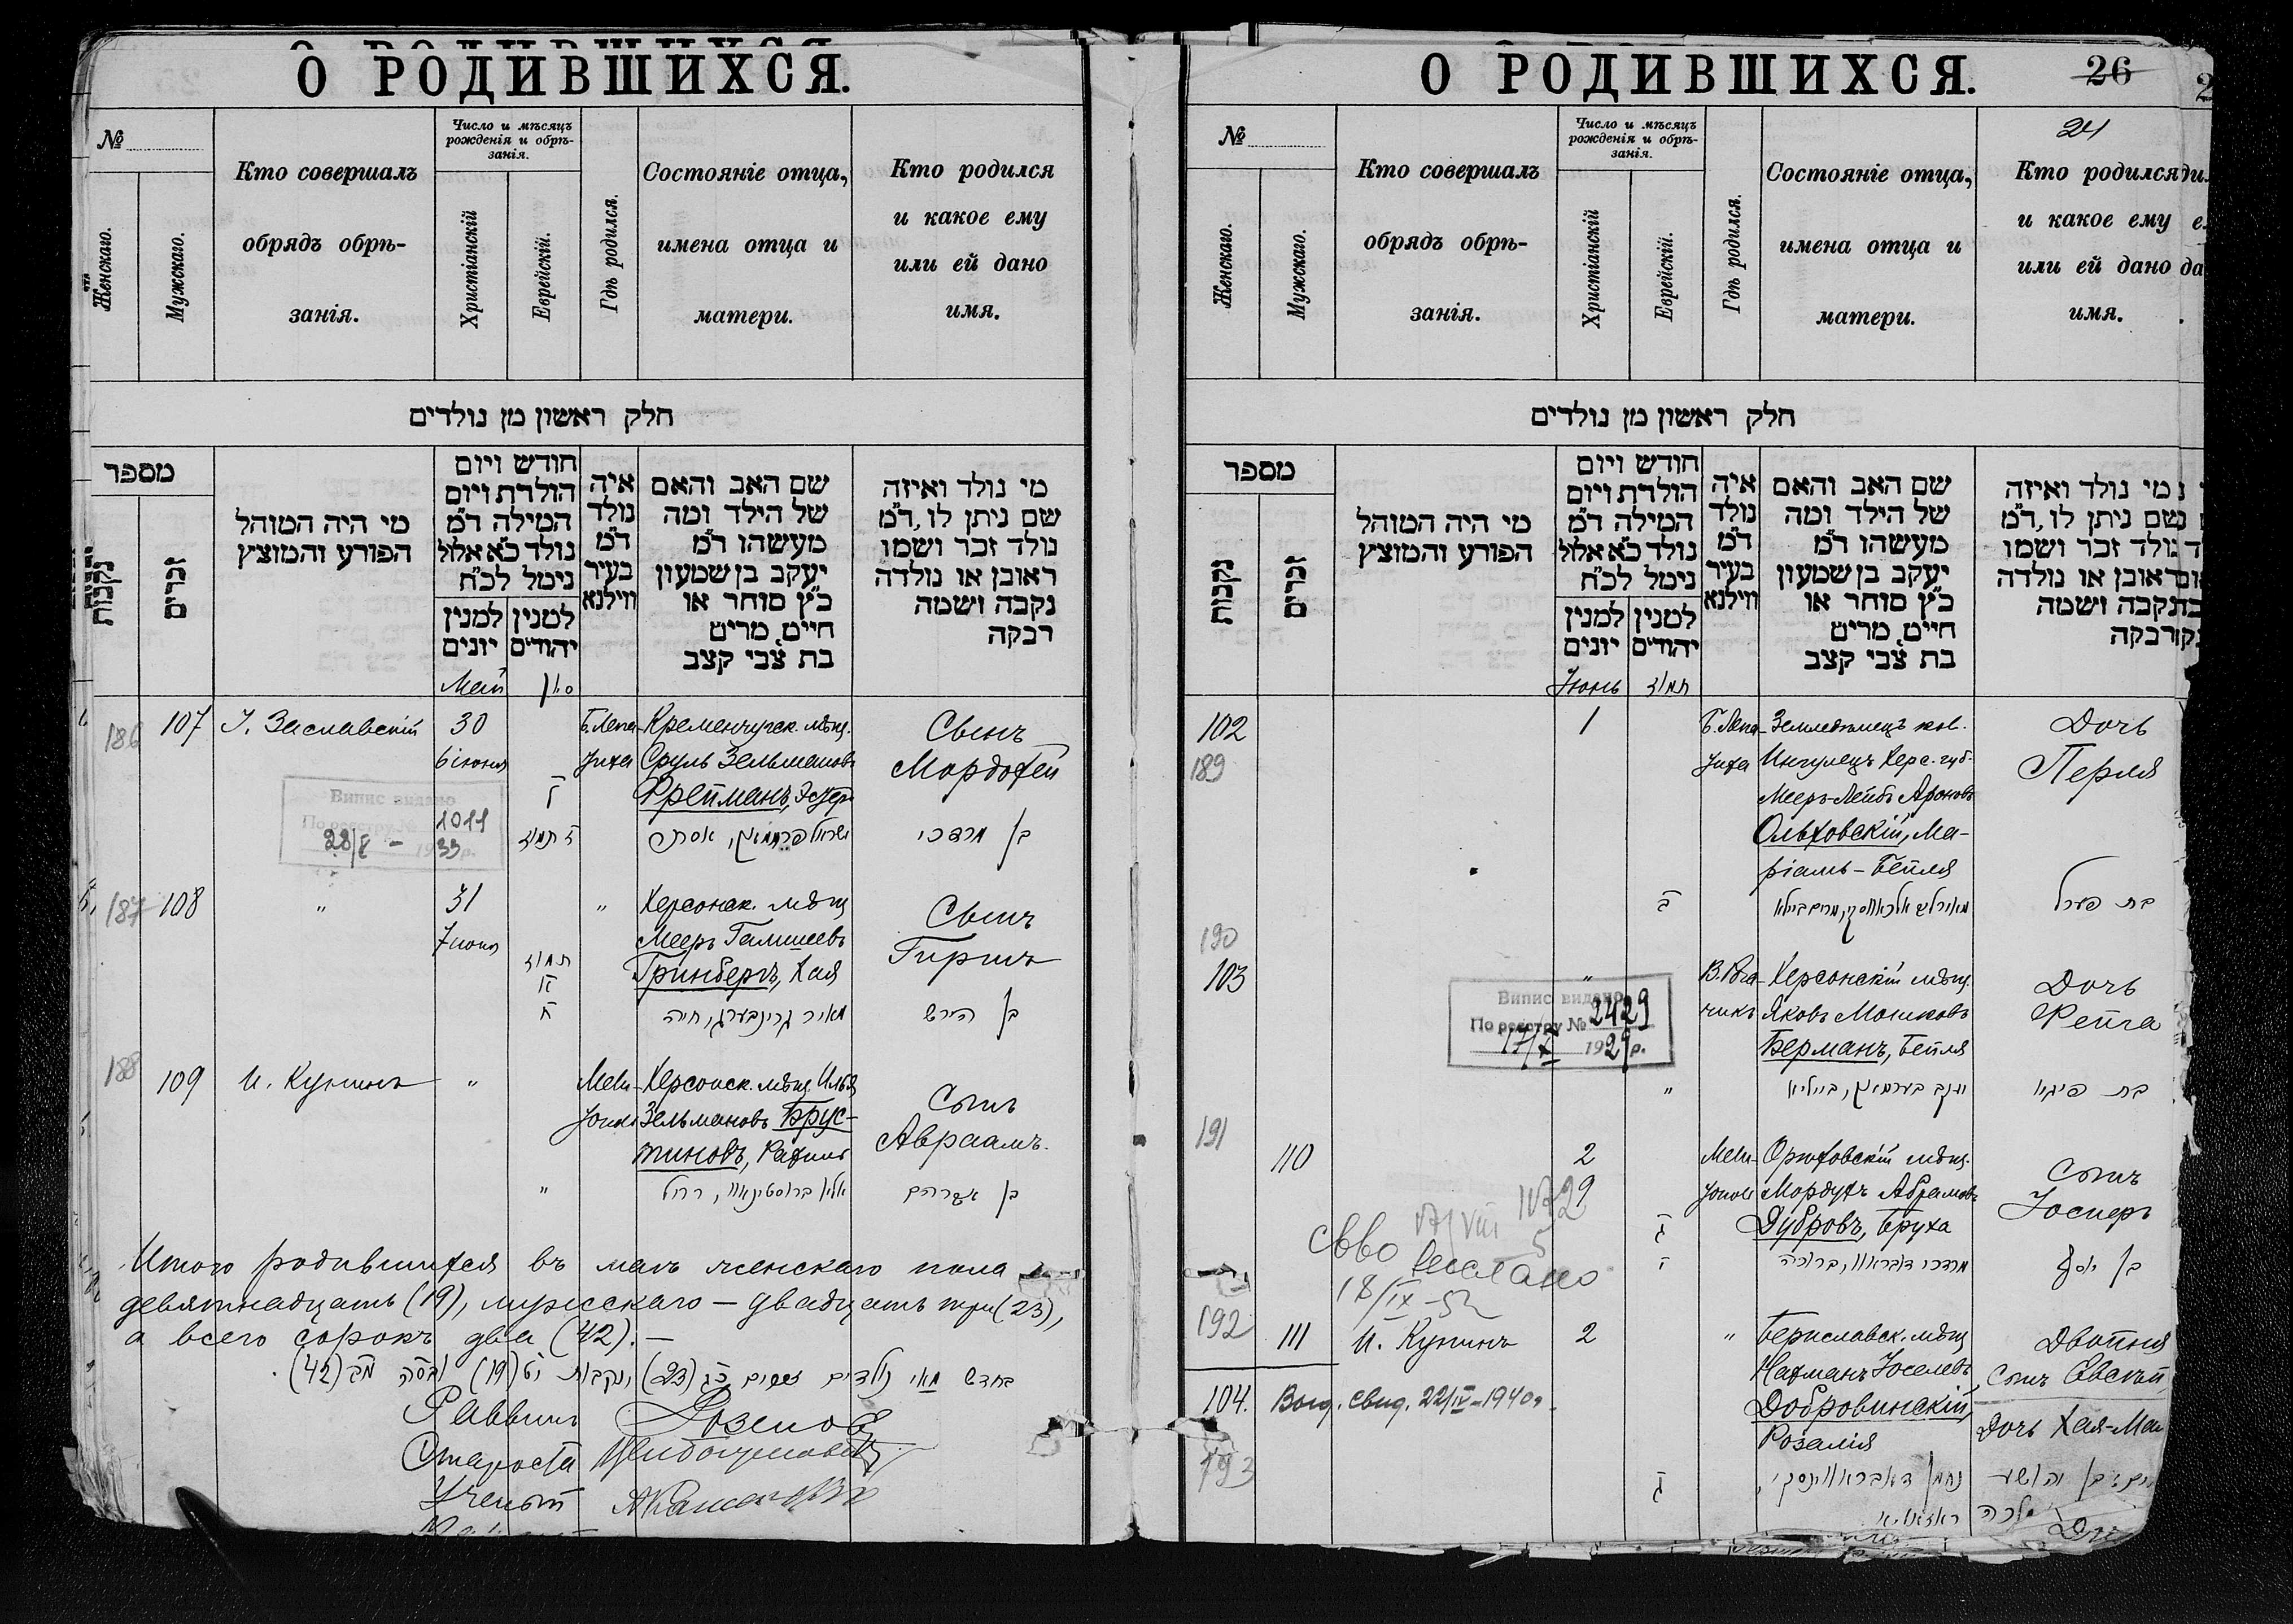 О РОДИВШИХСЯ.
№
Женскаго.
Мужскаго.
Кто совершалъ
обрядъ обрѣ-
занія.
Число и мѣсяцъ
рожденія и обрѣ-
занія.
Христіанскій
Еврейскій.
Гдѣ родился.
Состояніе отца,
имена отца и
матери.
Кто родился
и какое ему
или ей дано
имя.
חלק ראשון מן נולדים
מספר
נקבות
זכרים
מי היה המוהל
הפורע והמוצץ
חודש ויום
הולדת ויום
המילה ד״מ
נולד כ״א אלול
נימל לכ״ח
למנין יונים
למנין יהודים
איה
נולד
ד״מ
בעיר
ווילנא
שם האב והאם
של הילד ומה
מעשהו ד״מ
יעקב בן שמעון
כ״ץ סוחר או
חיים מרים
בת צבי קצב
מי נולד ואיזה
שם ניתן לו, ד״מ
נולד זכר ושמו
ראובן או נולדה
נקבה ושמה
רבקה
Май
סיון
186
107
І. Заславскій
30
6 іюня
Б. Лепа-
тиха
Кременчугск. мѣщ.
Сруль Зельмановъ
Фрейманъ, Эстеръ
Сынъ
Мордохей
Випис видано
По реєстру № 1011
28/X - 1933 р.
ד תמוז
בן מרדכי
187
108
"
31
7 июня
"
Херсонск. мѣщ
Мееръ
Гринбергъ, Хая
Сынъ
Гиршъ
תמוז
ה
מאיר גרינבערג, חיה
בן הירש
188
109
И. Купинъ
"
Херсонск. мѣщ. Илья
Зельмановъ Брус-
тиновъ, Рахиль
Сынъ
Авраамъ.
"
בן אברהם
Итого родившихся въ маѣ женскаго пола
девятнадцать (19), мужскаго — двадцать три (23),
а всего сорокъ два (42). —
בחדש מאי נולדים זכרים כג (23) ונקבות יט (19) ובסה מב (42).
Раввинъ
Староста
Ученый
О РОДИВШИХСЯ.
26
24
№
Женскаго.
Мужскаго.
Кто совершалъ
обрядъ обрѣ-
занія.
Число и мѣсяцъ
рожденія и обрѣ-
занія.
Христіанскій
Еврейскій.
Гдѣ родился.
Состояніе отца,
имена отца и
матери.
Кто родился
и какое ему
или ей дано
имя.
חלק ראשון מן נולדים
מספר
נקבות
זכרים
מי היה המוהל
הפורע והמוצץ
חודש ויום
הולדת ויום
המילה ד״מ
נולד כ״א אלול
נימל לכ״ח
למנין יונים
למנין יהודים
איה
נולד
ד״מ
בעיר
ווילנא
שם האב והאם
של הילד ומה
מעשהו ד״מ
יעקב בן שמעון
כ״ץ סוחר או
חיים מרים
בת צבי קצב
מי נולד ואיזה
שם ניתן לו, ד״מ
נולד זכר ושמו
ראובן או נולדה
נקבה ושמה
רבקה
Іюнь
תמוז
102
189
1
Б. Лепа-
тиха
Земледѣлецъ кол.
Ингулецъ Херс. губ.
Мееръ-Лейбъ Ароновъ
Ольховскій, Ма-
ріамъ-Бейля
Дочь
Перля
ב
בת פערל
190
103
"
В. Рога-
чикъ
Херсонскій мѣщ.
Яковъ Мошковъ
Берманъ, Бейля
Дочь
Рейга
Випис видано
По реєстру № 2429
1929 р.
"
יעקב בערמאן, ביילא
191
110
2
9
Орѣховскій мѣщ.
Мордухъ Абрамовъ
Дубровъ, Бруха
Сынъ
Іосифъ
ג
י
בן יוסף
Свво выслано
18/IX-52
192
111
И. Купинъ
2
"
Бериславск. мѣщ
Нахманъ Іоселевъ
Добровинскій,
Розалія
Двойня
Сынъ Овсѣй,
Дочь Хая-Мал
104.
Выд. свид. 22/IV-1940г.
193
ג
נחמן דאבראווינסקי,